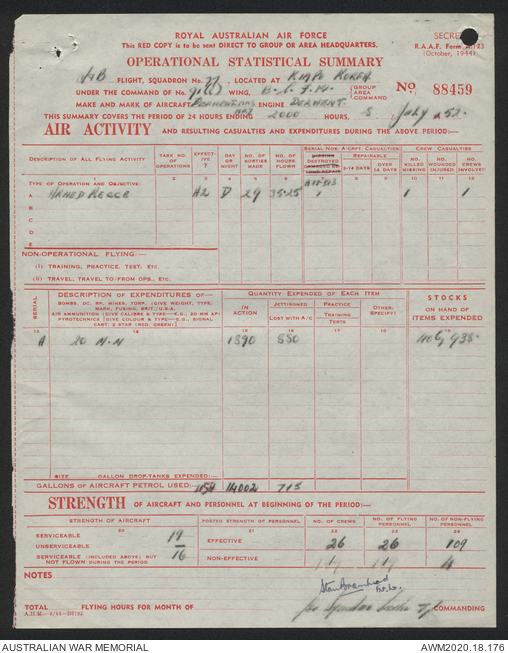 ROYAL AUSTRALIAN AIR FORCE
This RED COPY is to be sent DIRECT TO GROUP OR AREA HEADQUARTERS.
SECRE
R.A.A.F. Form A.123
(October, 1944)
OPERATIONAL STATISTICAL SUMMARY
FLIGHT, SQUADRON No. 77, LOCATED AT KIMPO KOREA
UNDER THE COMMAND OF No. WING, GROUP AREA COMMAND
No 88459
MAKE AND MARK OF AIRCRAFT ENGINE DERWENT
THIS SUMMARY COVERS THE PERIOD OF 24 HOURS ENDING 2000 HOURS, 5 July 52.
AIR ACTIVITY AND RESULTING CASUALTIES AND EXPENDITURES DURING THE ABOVE PERIOD:—
SERIAL NOS. A'CRAFT. CASUALTIES CREW CASUALTIES
DESCRIPTION OF ALL FLYING ACTIVITY TASK NO. OF OPERATIONS EFFECTIVE ? DAY OR NIGHT NO. OF SORTIES MADE NO. OF HOURS FLOWN DESTROYED REPAIRABLE 3-14 DAYS OVER 14 DAYS NO. KILLED MISSING NO. WOUNDED INJURED NO. CREWS INVOLVED
1 2 3 4 5 6 7 8 9 10 11 12
TYPE OF OPERATION AND OBJECTIVE:
A ARMED RECCE A2 D 29 35·25 1 1
B
C
D
E
NON-OPERATIONAL FLYING:—
(I) TRAINING, PRACTICE, TEST, ETC.
(II) TRAVEL, TRAVEL TO/FROM OPS., ETC.
SERIAL DESCRIPTION OF EXPENDITURES OF— QUANTITY EXPENDED OF EACH ITEM STOCKS
BOMBS, DC, RP, MINES, TORP. (GIVE WEIGHT, TYPE, MARK, FUZING, BRIT./U.S.A.
AIR AMMUNITION (GIVE CALIBRE & TYPE—E.G., 20 MM AP)
PYROTECHNICS (GIVE COLOUR & TYPE—E.G., SIGNAL CART. 2 STAR (RED, GREEN).
IN ACTION JETTISONED LOST WITH A/C PRACTICE TRAINING TESTS OTHER: SPECIFY) ON HAND OF ITEMS EXPENDED
13 14 15 16 17 18 19
A 20 M.M 1890 850
SIZE GALLON DROP-TANKS EXPENDED:—
GALLONS OF AIRCRAFT PETROL USED:— 14002 715
STRENGTH OF AIRCRAFT AND PERSONNEL AT BEGINNING OF THE PERIOD:—
STRENGTH OF AIRCRAFT POSTED STRENGTH OF PERSONNEL NO. OF CREWS NO. OF FLYING PERSONNEL NO. OF NON-FLYING PERSONNEL
20 21 22 23 24
SERVICEABLE 19
EFFECTIVE 26 26 109
UNSERVICEABLE
SERVICEABLE (INCLUDED ABOVE) BUT NOT FLOWN DURING THE PERIOD 16
NON-EFFECTIVE 4
NOTES
COMMANDING
TOTAL FLYING HOURS FOR MONTH OF
AUSTRALIAN WAR MEMORIAL
AWM2020.18.176